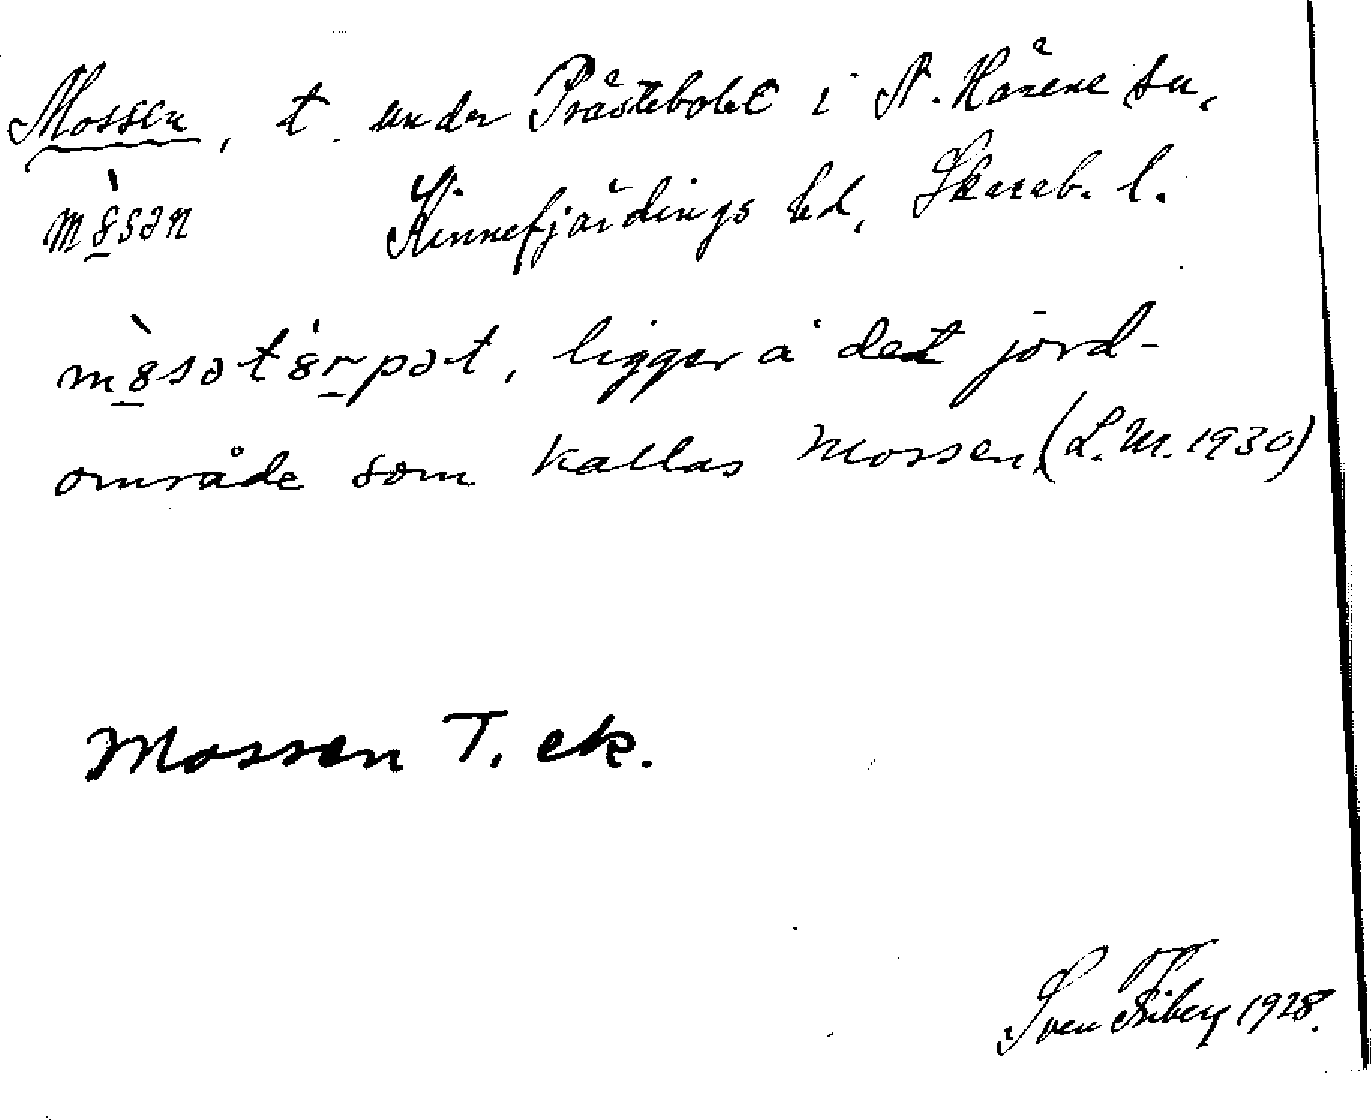 Mossen, t. under Prästebolet i N. Härene sn,
m8̀sən Kinnefjärdings hd, Skarab. l.
m8̀sət8́rpət, ligger å det jord-
område som kallas Mossen (L.M. 1930)
Mossen T. ek.
Sven Friberg 1928.